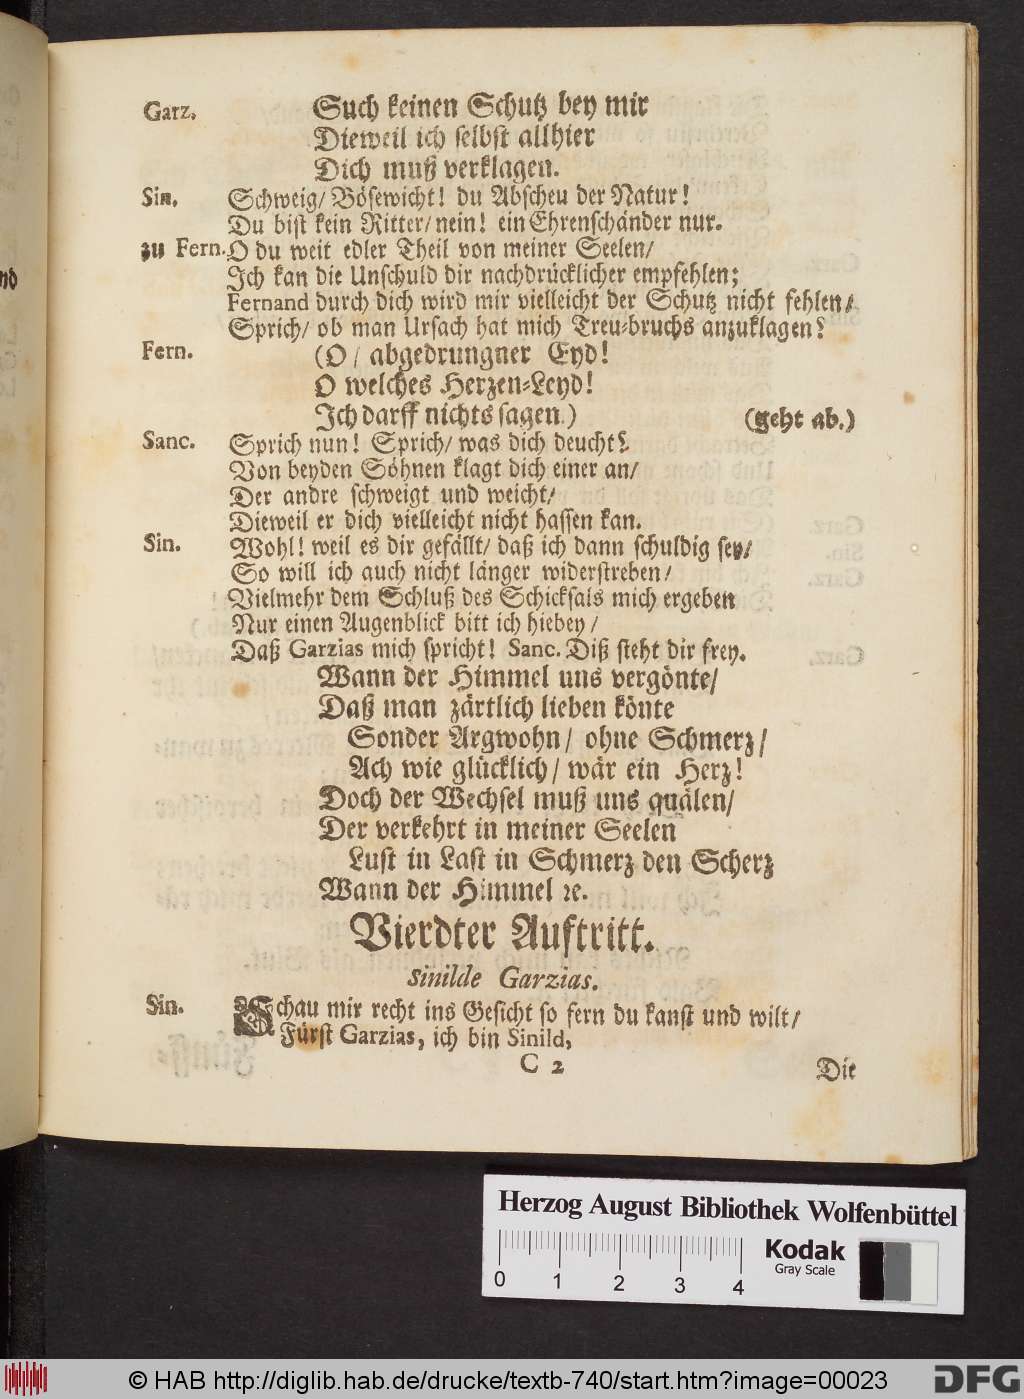 Garz. Such keinen Schutz bey mir
Dieweil ich selbst allhier
Dich muß verklagen.
Sin. Schweig/ Bösewicht! du Abscheu der Natur!
Du bist kein Ritter/ nein! ein Ehrenschänder nur.
zu Fern. O du weit edler Theil von meiner Seelen/
Ich kan die Unschuld dir nachdrücklicher empfehlen;
Fernand durch dich wird mir vielleicht der Schutz nicht fehlen/
Sprich/ ob man Ursach hat mich Treu-bruchs anzuklagen?
Fern. (O/ abgedrungner Eyd!
O welches Herzen-Leyd!
Ich darff nichts sagen.) (geht ab.)
Sanc. Sprich nun! Sprich/ was dich deucht?
Von beyden Söhnen klagt dich einer an/
Der andre schweigt und weicht/
Dieweil er dich vielleicht nicht hassen kan.
Sin. Wohl! weil es dir gefällt/ daß ich dann schuldig sey/
So will ich auch nicht länger widerstreben/
Vielmehr dem Schluß des Schicksals mich ergeben
Nur einen Augenblick bitt ich hiebey/
Daß Garzias mich spricht! Sanc. Diß steht dir frey.
Wann der Himmel uns vergönte/
Daß man zärtlich lieben könte
Sonder Argwohn/ ohne Schmerz/
Ach wie glücklich/ wär ein Herz!
Doch der Wechsel muß uns quälen/
Der verkehrt in meiner Seelen
Lust in Last in Schmerz den Scherz
Wann der Himmel ꝛc.
Vierdter Auftritt.
Sinilde Garzias.
Sin. Schau mir recht ins Gesicht so fern du kanst und wilt/
Fürst Garzias, ich bin Sinild,
C 2 Die
Herzog August Bibliothek Wolfenbüttel
0 1 2 3 4
Kodak
Gray Scale
© HAB http://diglib.hab.de/drucke/textb-740/start.htm?image=00023
DFG